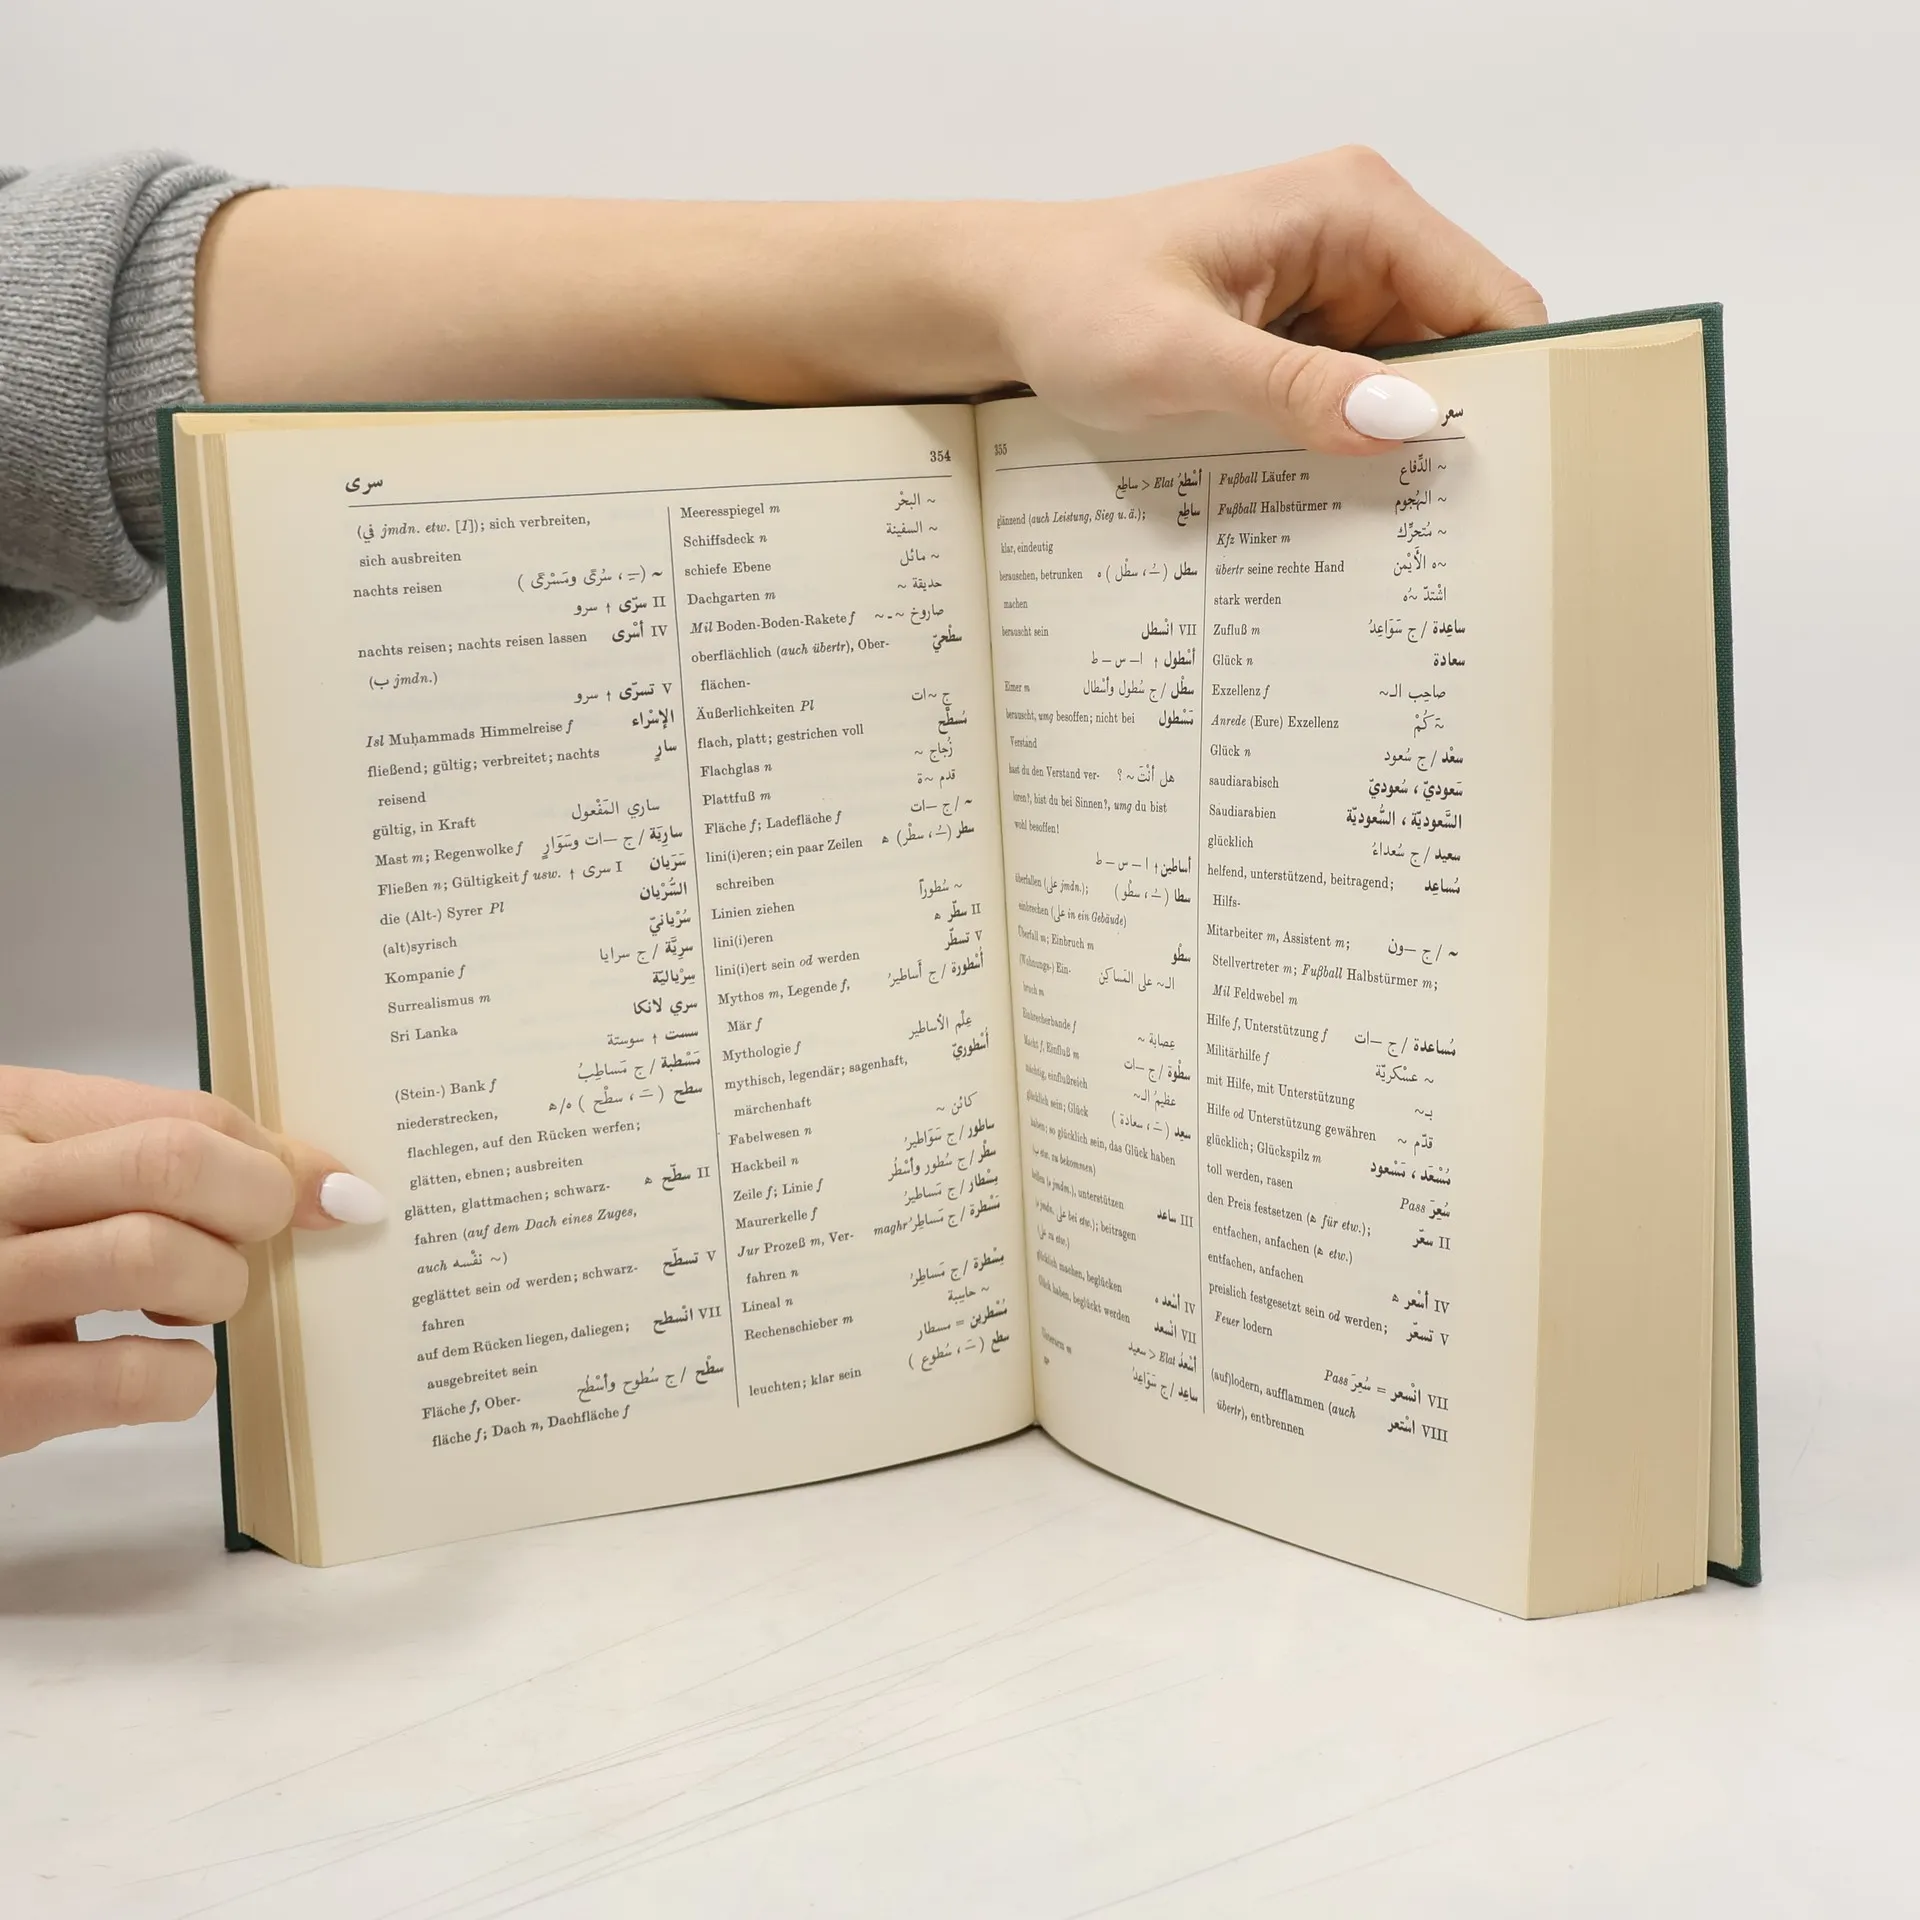 سرى
354
(في jmdn. etw. [1]); sich verbreiten,
sich ausbreiten
nachts reisen ~ (–ِ، سُرًى ومَسْرًى)
II سرّى ↑ سرو
nachts reisen; nachts reisen lassen IV أسْرى
(ب jmdn.)
V تسرّى ↑ سرو
Isl Muḥammads Himmelreise f الإسْراء
fließend; gültig; verbreitet; nachts سارٍ
reisend
gültig, in Kraft ساري المَفْعول
Mast m; Regenwolke f سارِيَة / ج —ات وسَوَارٍ
Fließen n; Gültigkeit f usw. ↑ سرى I سَرَيان
die (Alt-) Syrer Pl السُّرْيان
(alt)syrisch سُرْيانيّ
Kompanie f سرِيَّة / ج سرايا
Surrealismus m سِرْياليّة
Sri Lanka سري لانكا
سست ↑ سوستة
(Stein-) Bank f مَسْطبة / ج مَساطِبُ
niederstrecken, سطح (–َ، سطْح) ه/ه
flachlegen, auf den Rücken werfen;
glätten, ebnen; ausbreiten
glätten, glattmachen; schwarz- II سطّح ه
fahren (auf dem Dach eines Zuges,
auch نفْسه ~)
geglättet sein od werden; schwarz- V تسطّح
fahren
auf dem Rücken liegen, daliegen; VII انْسطح
ausgebreitet sein
Fläche f, Ober- سطْح / ج سُطوح وأسْطُح
fläche f; Dach n, Dachfläche f
Meeresspiegel m ~ البحْر
Schiffsdeck n ~ السفينة
schiefe Ebene ~ مائل
Dachgarten m حديقة ~
Mil Boden-Boden-Rakete f صاروخ ~-~
oberflächlich (auch übertr), Ober- سطْحيّ
flächen-
Äußerlichkeiten Pl ج ~ات
flach, platt; gestrichen voll مُسطَّح
Flachglas n زُجاج ~
Plattfuß m قدم ~ة
Fläche f; Ladefläche f ~ / ج —ات
lini(i)eren; ein paar Zeilen سطر (–ُ، سطْر) ه
schreiben
Linien ziehen ~ سُطوراً
lini(i)eren II سطّر ه
lini(i)ert sein od werden V تسطّر
Mythos m, Legende f, أُسْطورة / ج أساطيرُ
Mär f
Mythologie f عِلْم الأساطير
mythisch, legendär; sagenhaft, أُسْطوريّ
märchenhaft
Fabelwesen n كائن ~
Hackbeil n ساطور / ج سَوَاطيرُ
Zeile f; Linie f سطْر / ج سُطور وأسْطُر
Maurerkelle f مِسْطار / ج مَساطيرُ
Jur Prozeß m, Ver- maghr مَسْطرة / ج مَساطِرُ
fahren n
Lineal n مِسْطرة / ج مَساطِرُ
Rechenschieber m ~ حاسِبة
مُسْطرين = مسطار
leuchten; klar sein سطع (–َ، سُطوع)
355
سعر
أسْطعُ Elat < ساطِع
glänzend (auch Leistung, Sieg u. ä.); ساطِع
klar, eindeutig
berauschen, betrunken سطل (–ُ، سطْل) ه
machen
berauscht sein VII انْسطل
أُسْطول ↑ ا – س – ط
Eimer m سطْل / ج سُطول وأسْطال
berauscht, umg besoffen; nicht bei مَسْطول
Verstand
hast du den Verstand ver- هل أنْتَ ~ ؟
loren?, bist du bei Sinnen?, umg du bist
wohl besoffen!
أساطين ↑ ا – س – ط
überfallen (على jmdn.); سطا (–ُ، سطْو)
einbrechen (على in ein Gebäude)
Überfall m; Einbruch m سطْو
(Wohnungs-) Ein- الـ~ على المَساكِن
bruch m
Einbrecherbande f عِصابة ~
Macht f, Einfluß m سطْوة / ج —ات
mächtig, einflußreich عظيمُ الـ~
glücklich sein; Glück سعِد (–َ، سعادة)
haben; so glücklich sein, das Glück haben
(ب etw. zu bekommen)
helfen (ه jmdm.), unterstützen III ساعد
(ه jmdn. على bei etw.); beitragen
(على zu etw.)
glücklich machen, beglücken IV أسْعد ه
Glück haben, beglückt werden VII انْسعد
أسْعدُ Elat < سعيد
Unterarm m ساعِد / ج سَوَاعِدُ
Fußball Läufer m ~ الدِّفاع
Fußball Halbstürmer m ~ الهُجوم
Kfz Winker m ~ مُتحرِّك
übertr seine rechte Hand ~ه الأَيْمن
stark werden اشْتدّ ~ه
Zufluß m ساعِدة / ج سَوَاعِدُ
Glück n سعادة
Exzellenz f صاحِب الـ~
Anrede (Eure) Exzellenz ~َكُمْ
Glück n سعْد / ج سُعود
saudiarabisch سَعوديّ ، سُعوديّ
Saudiarabien السَّعوديّة ، السُّعوديّة
glücklich سعيد / ج سُعداءُ
helfend, unterstützend, beitragend; مُساعِد
Hilfs-
Mitarbeiter m, Assistent m; ~ / ج —ون
Stellvertreter m; Fußball Halbstürmer m;
Mil Feldwebel m
Hilfe f, Unterstützung f مُساعدة / ج —ات
Militärhilfe f ~ عسْكريّة
mit Hilfe, mit Unterstützung بـ~
Hilfe od Unterstützung gewähren قدّم ~
glücklich; Glückspilz m مُسْعَد ، مَسْعود
toll werden, rasen Pass سُعِرَ
den Preis festsetzen (ه für etw.); II سعّر
entfachen, anfachen (ه etw.)
entfachen, anfachen IV أسْعر ه
preislich festgesetzt sein od werden; V تسعّر
Feuer lodern
VII انْسعر = سُعِرَ Pass
(auf)lodern, aufflammen (auch VIII اسْتعر
übertr), entbrennen